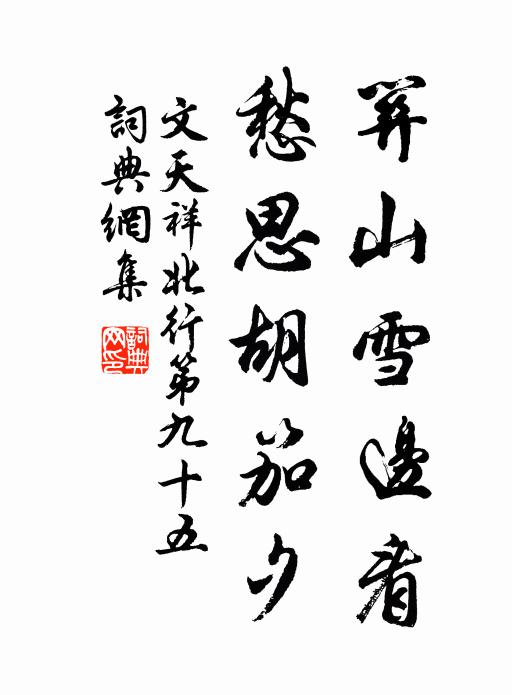 關山雪邊看
愁思胡笳夕
文天祥北行第九十五
詞典網集
詞典网印